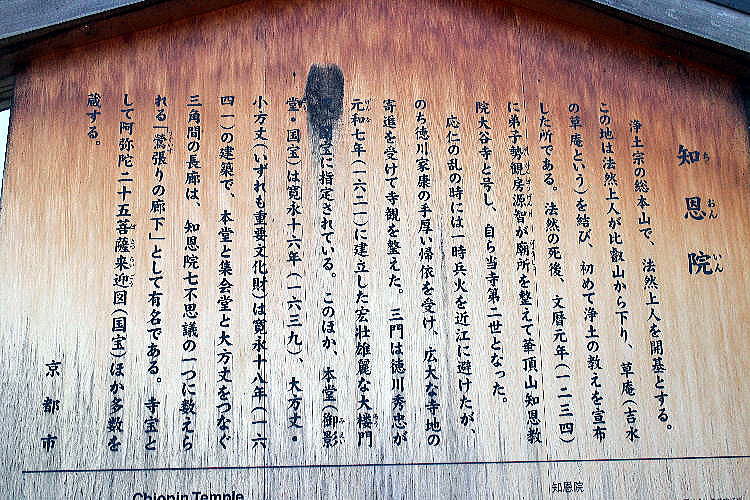 知恩院
ち おん いん
浄土宗の総本山で、法然上人を開基とする。
この地は法然上人が比叡山から下り、草庵（吉水
の草庵という）を結び、初めて浄土の教えを宣布
した所である。法然の死後、文暦元年（一二三四）
に弟子勢観房源智が廟所を整えて華頂山知恩教
院大谷寺と号し、自ら当寺第二世となった。
応仁の乱の時には一時兵火を近江に避けたが、
のち徳川家康の手厚い帰依を受け、広大な寺地の
寄進を受けて寺観を整えた。三門は徳川秀忠が
元和七年（一六二一）に建立した宏壮雄麗な大楼門
宝に指定されている。このほか、本堂（御影
堂・国宝）は寛永十六年（一六三九）、大方丈・
小方丈（いずれも重要文化財）は寛永十八年（一六
四一）の建築で、本堂と集会堂と大方丈をつなぐ
三角間の長廊は、知恩院七不思議の一つに数えら
れる「鶯張りの廊下」として有名である。寺宝と
して阿弥陀二十五菩薩来迎図（国宝）ほか多数を
蔵する。
京都市
Chionin Temple
知恩院